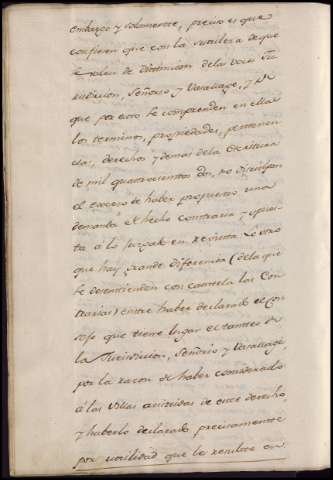 embargo, y solamente, preciso es que
confiesen que con la sutileza de que
se valen de distincion de las voces Ju-
risdicion, Señorio, y Vasallage, y de
que por esto se comprenden en ellas
los terminos, propiedades, pertenen-
cias, derechos y demas de la Escritura
de mil quatrocientos dos, no disculpan
el exceso de haber propuesto una
demanda el hecho contraria, y opues-
ta á lo juzgado en revista. Lo otro
que hay grande diferencia (de la que
se desentienden con cautela los Con-
trarios) entre haber declarado el Con-
sejo que tiene lugar el tanteo de
la Jurisdicion, Señorio y Vasallage,
por la razon de haber considerado
á las Villas asistidas de este derecho,
y haberlo declarado precisamente
por utilidad que le resulte en